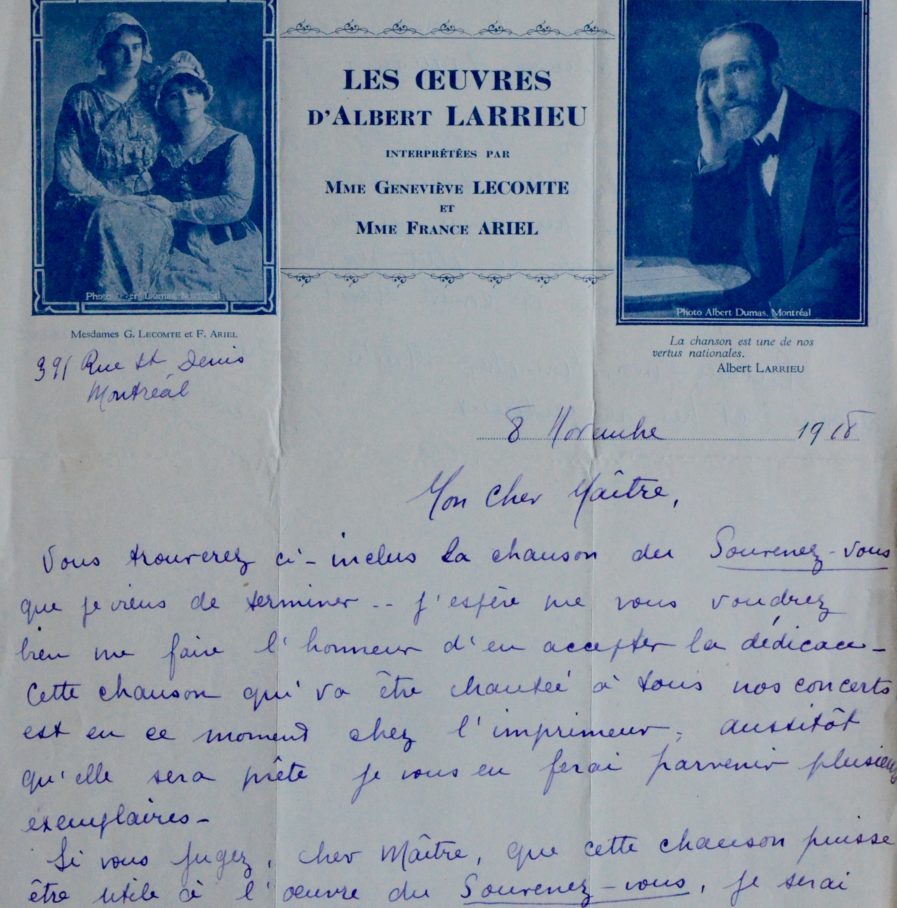 LES ŒUVRES
D'ALBERT LARRIEU
INTERPRÉTÉES PAR
MME GENEVIÈVE LECOMTE
ET
MME FRANCE ARIEL
Photo Albert Dumas, Montréal
Mesdames G. LECOMTE et F. ARIEL
Photo Albert Dumas, Montréal
La chanson est une de nos
vertus nationales.
Albert LARRIEU
391 Rue St Denis
Montréal
8 Novembre 1918
Mon cher Maître,
Vous trouverez ci-inclus la chanson du Souvenez-vous
que je viens de terminer -- j'espère que vous voudrez
bien me faire l'honneur d'en accepter la dédicace -
Cette chanson qui va être chantée à tous nos concerts
est en ce moment chez l'imprimeur, aussitôt
qu'elle sera prête je vous en ferai parvenir plusieurs
exemplaires -
Si vous jugez, cher Maître, que cette chanson puisse
être utile à l'œuvre du Souvenez-vous, je serai